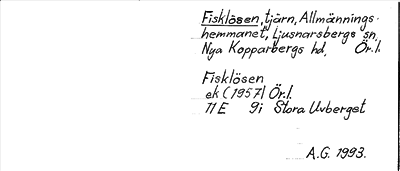 Fisklösen, tjärn, Allmännings-
hemmanet, Ljusnarsbergs sn,
Nya Kopparbergs hd, Ör.l.
Fisklösen
ek (1957) Ör.l.
11E 9i Stora Uvberget
A.G. 1993.